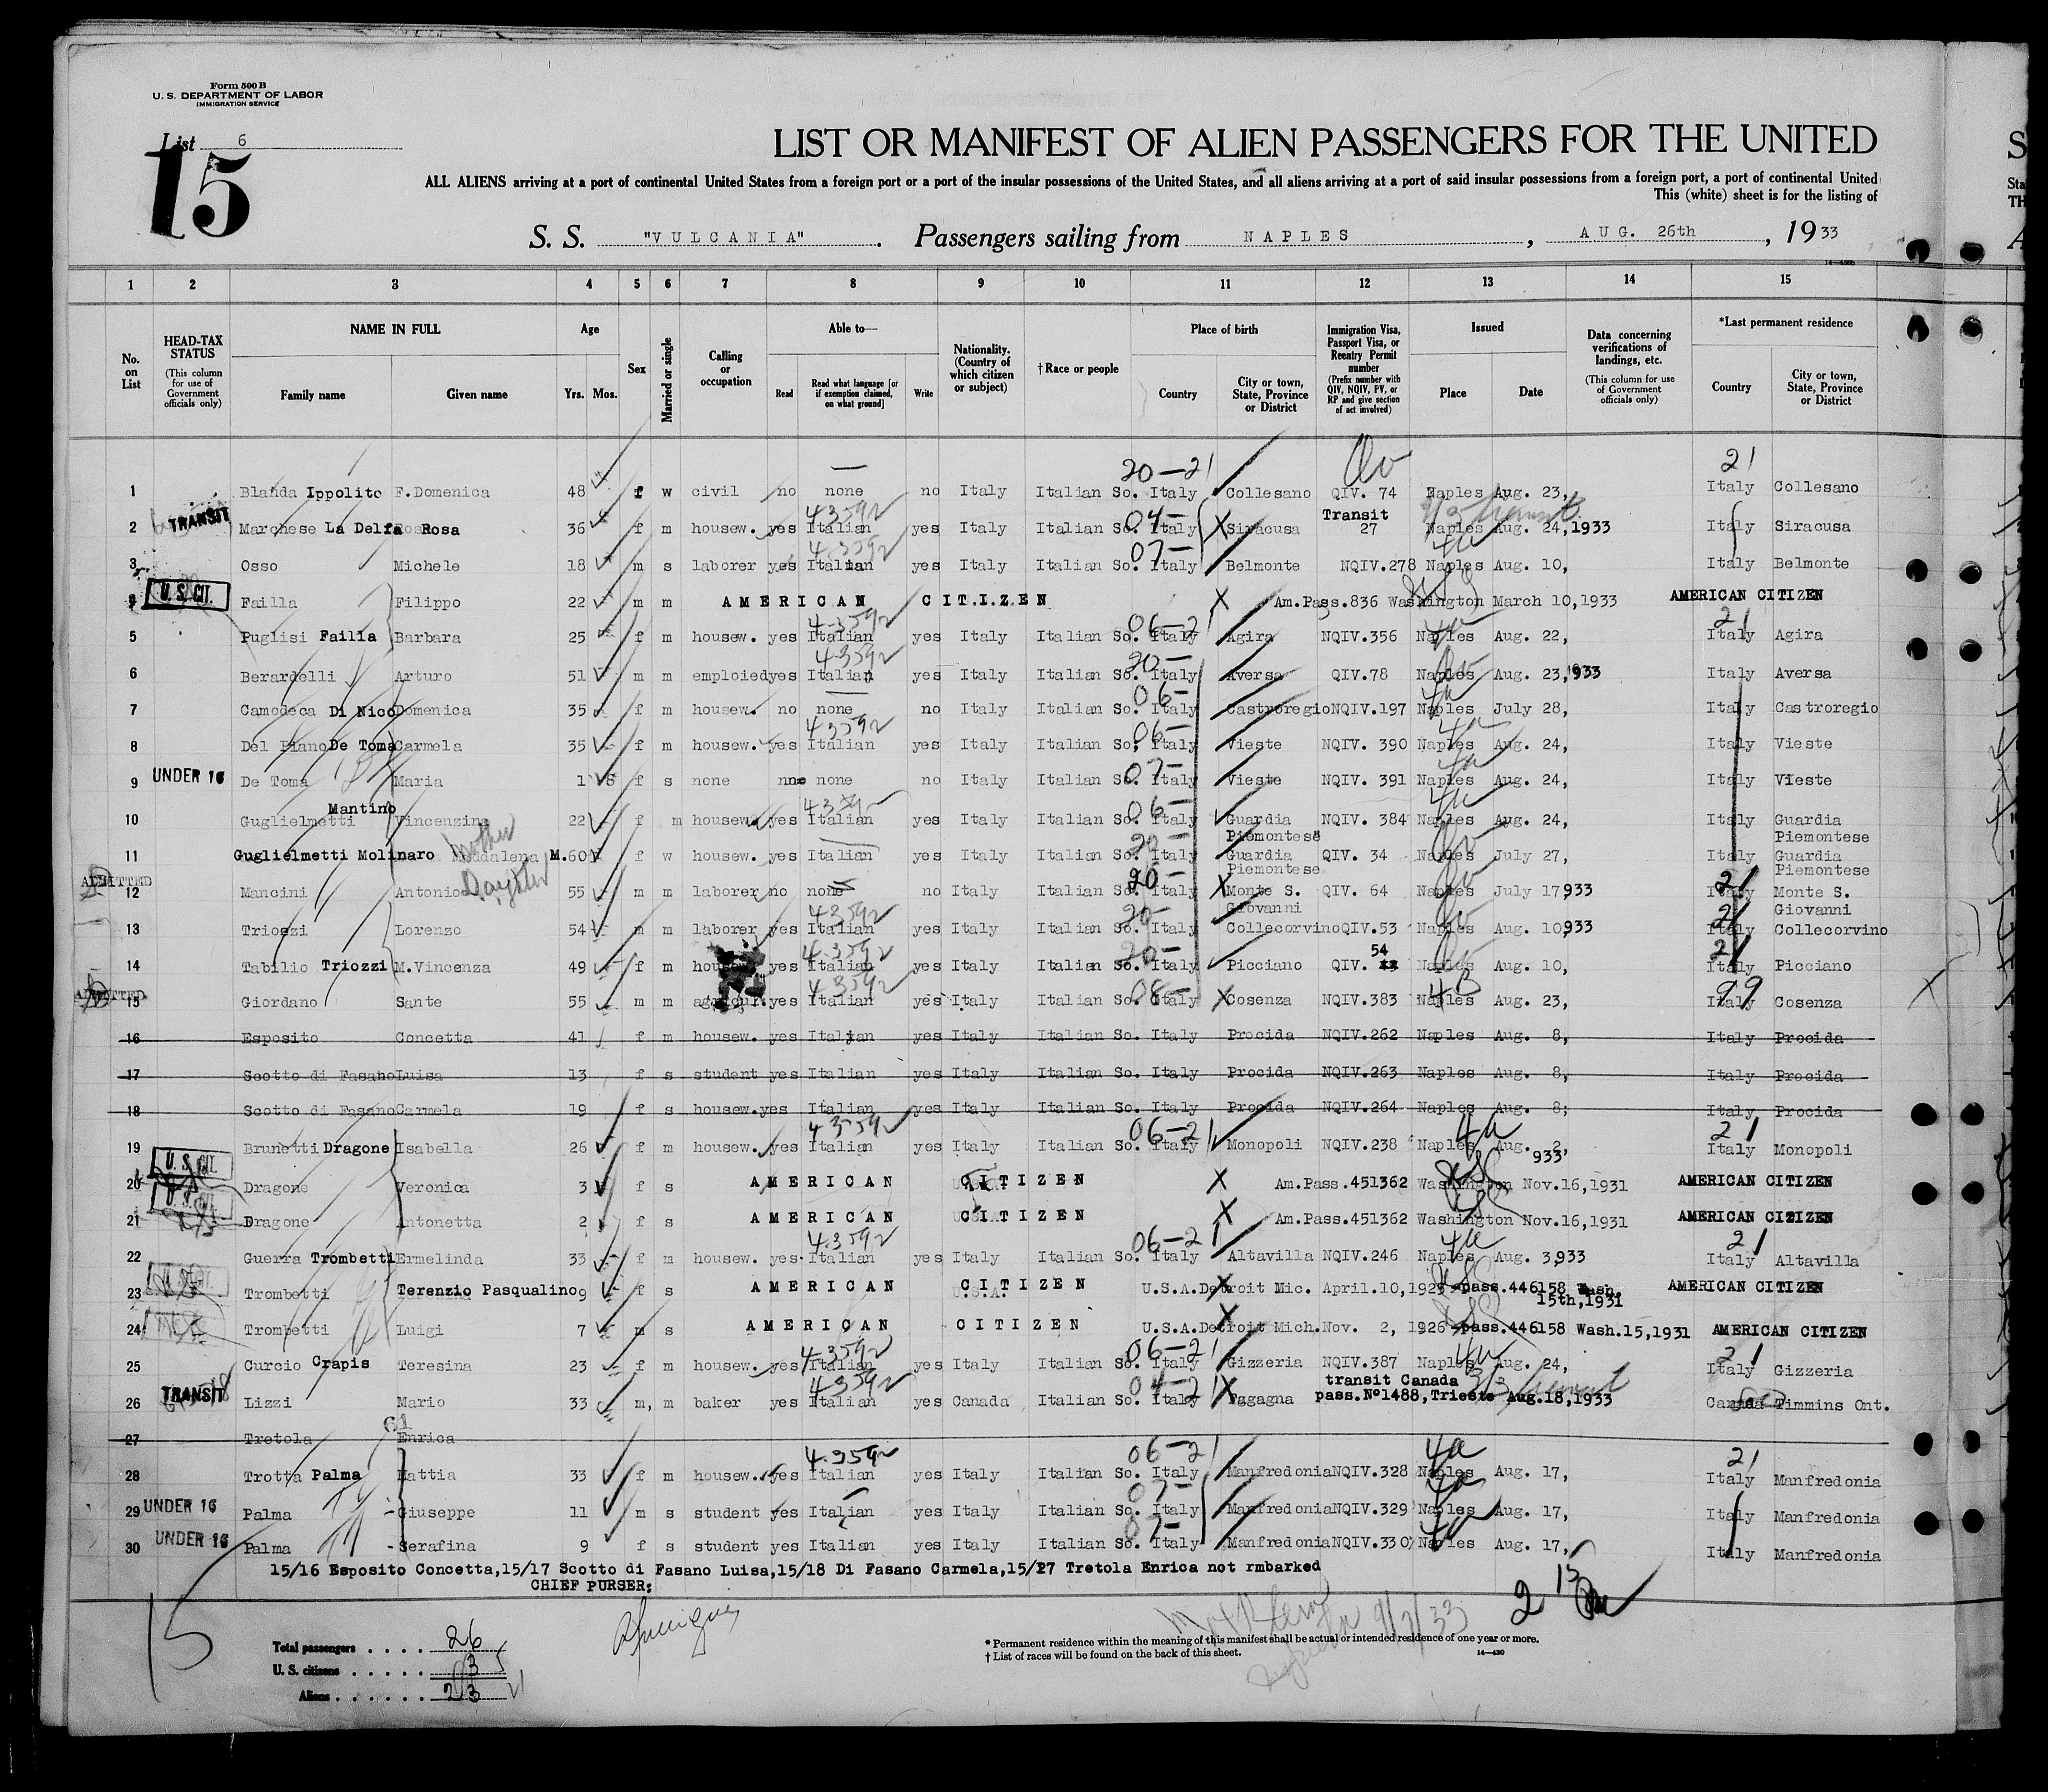 Form 500 B
U. S. DEPARTMENT OF LABOR
IMMIGRATION SERVICE
List 6
15
LIST OR MANIFEST OF ALIEN PASSENGERS FOR THE UNITED
ALL ALIENS arriving at a port of continental United States from a foreign port or a port of the insular possessions of the United States, and all aliens arriving at a port of said insular possessions from a foreign port, a port of continental United
This (white) sheet is for the listing of
S. S. "VULCANIA" . Passengers sailing from NAPLES , AUG. 26th , 1933
1 2 3 4 5 6 7 8 9 10 11 12 13 14 15
No. on List
HEAD-TAX STATUS (This column for use of Government officials only)
NAME IN FULL Family name Given name
Age Yrs. Mos.
Sex
Married or single
Calling or occupation
Able to— Read Read what language [or if exemption claimed, on what ground] Write
Nationality. (Country of which citizen or subject)
†Race or people
Place of birth Country City or town, State, Province or District
Immigration Visa, Passport Visa, or Reentry Permit number (Prefix number with QIV, NQIV, PV, or RP and give section of act involved)
Issued Place Date
Data concerning verifications of landings, etc. (This column for use of Government officials only)
*Last permanent residence Country City or town, State, Province or District
20-21 21
1 Blanda Ippolito F.Domenica 48 f w civil no none no Italy Italian So. Italy Collesano QIV. 74 Naples Aug. 23, Italy Collesano
2 TRANSIT Marchese La Delfa Rosa 36 f m housew. yes Italian yes Italy Italian So. Italy Siracusa Transit 27 Naples Aug. 24,1933 Italy Siracusa
3 Osso Michele 18 m s laborer yes Italian yes Italy Italian So. Italy Belmonte NQIV.278 Naples Aug. 10, Italy Belmonte
4 U.S. CIT. Failla Filippo 22 m m AMERICAN CITIZEN Am.Pass.836 Washington March 10,1933 AMERICAN CITIZEN
5 Puglisi Failla Barbara 25 f m housew. yes Italian yes Italy Italian So. Italy Agira NQIV.356 Naples Aug. 22, Italy Agira
6 Berardelli Arturo 51 m m emploied yes Italian yes Italy Italian So. Italy Aversa QIV.78 Naples Aug. 23,1933 Italy Aversa
7 Camodeca Di Nico Domenica 35 f m housew. no none no Italy Italian So. Italy Castroregio NQIV.197 Naples July 28, Italy Castroregio
8 Del Piano De Toma Carmela 35 f m housew. yes Italian yes Italy Italian So. Italy Vieste NQIV. 390 Naples Aug. 24, Italy Vieste
9 UNDER 16 De Toma Maria 1 f s none none no Italy Italian So. Italy Vieste NQIV. 391 Naples Aug. 24, Italy Vieste
10 Guglielmetti Mantino Vincenzina 22 f m housew. yes Italian yes Italy Italian So. Italy Guardia Piemontese NQIV. 384 Naples Aug. 24, Italy Guardia Piemontese
11 Guglielmetti Molinaro Maddalena M. 60 f w housew. yes Italian yes Italy Italian So. Italy Guardia Piemontese QIV. 34 Naples July 27, Italy Guardia Piemontese
12 ADMITTED Mancini Antonio 55 m m laborer no none no Italy Italian So. Italy Monte S. Giovanni QIV. 64 Naples July 17,933 Italy Monte S. Giovanni
13 Triozzi Lorenzo 54 m m laborer yes Italian yes Italy Italian So. Italy Collecorvino QIV.53 Naples Aug. 10,933 Italy Collecorvino
14 Tabilio Triozzi M.Vincenza 49 f m housew. yes Italian yes Italy Italian So. Italy Picciano QIV. 54 Naples Aug. 10, Italy Picciano
15 ADMITTED Giordano Sante 55 m m agricul. yes Italian yes Italy Italian So. Italy Cosenza NQIV.383 Naples Aug. 23, Italy Cosenza
16 Esposito Concetta 41 f m housew. yes Italian yes Italy Italian So. Italy Procida NQIV.262 Naples Aug. 8, Italy Procida
17 Scotto di Fasano Luisa 13 f s student yes Italian yes Italy Italian So. Italy Procida NQIV.263 Naples Aug. 8, Italy Procida
18 Scotto di Fasano Carmela 19 f s housew. yes Italian yes Italy Italian So. Italy Procida NQIV.264 Naples Aug. 8, Italy Procida
19 Brunetti Dragone Isabella 26 f m housew. yes Italian yes Italy Italian So. Italy Monopoli NQIV.238 Naples Aug. 2, 933 Italy Monopoli
20 U.S. CIT. Dragone Veronica 3 f s AMERICAN CITIZEN Am.Pass.451362 Washington Nov.16,1931 AMERICAN CITIZEN
21 Dragone Antonetta 2 f s AMERICAN CITIZEN Am.Pass.451362 Washington Nov.16,1931 AMERICAN CITIZEN
22 Guerra Trombetti Ermelinda 33 f m housew. yes Italian yes Italy Italian So. Italy Altavilla NQIV.246 Naples Aug. 3,933 Italy Altavilla
23 Trombetti Terenzio Pasqualino 9 f s AMERICAN CITIZEN U.S.A. Detroit Mic. April.10,1925 pass.446158 Wash. 15th,1931 AMERICAN CITIZEN
24 Trombetti Luigi 7 m s AMERICAN CITIZEN U.S.A. Detroit Mich. Nov. 2, 1926 pass.446158 Wash.15,1931 AMERICAN CITIZEN
25 Curcio Crapis Teresina 23 f m housew. yes Italian yes Italy Italian So. Italy Gizzeria NQIV.387 Naples Aug. 24, Italy Gizzeria
26 TRANSIT Lizzi Mario 33 m, m baker yes Italian yes Canada Italian So. Italy Fagagna transit Canada pass.Nº1488,Trieste Aug.18,1933 Canada Timmins Ont.
27 Tretola Enrica
28 Trotta Palma Mattia 33 f m housew. yes Italian yes Italy Italian So. Italy Manfredonia NQIV.328 Naples Aug. 17, Italy Manfredonia
29 UNDER 16 Palma Giuseppe 11 m s student yes Italian yes Italy Italian So. Italy Manfredonia NQIV.329 Naples Aug. 17, Italy Manfredonia
30 UNDER 16 Palma Serafina 9 f s student yes Italian yes Italy Italian So. Italy Manfredonia NQIV.330 Naples Aug. 17, Italy Manfredonia
15/16 Esposito Concetta,15/17 Scotto di Fasano Luisa,15/18 Di Fasano Carmela,15/27 Tretola Enrica not rmbarked
CHIEF PURSER:
15
Total passengers . . . . 26
U. S. citizens . . . . . 3
Aliens . . . . . . 23
* Permanent residence within the meaning of this manifest shall be actual or intended residence of one year or more.
† List of races will be found on the back of this sheet.
14—430